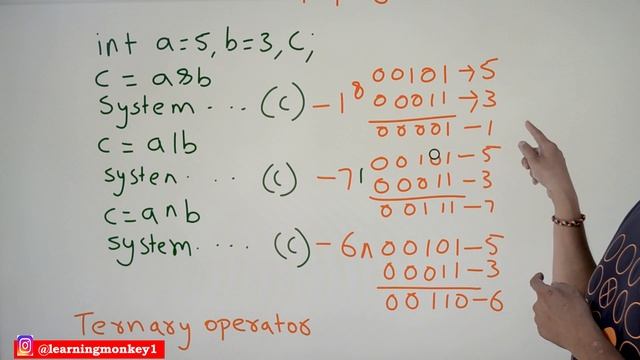 int a=5, b=3, C;
C = a&b
System ... (C) -1
& 00101 → 5
00011 → 3
00001 - 1
C = a|b
system ..... (C) - 7
| 00101 - 5
00011 - 3
00111 - 7
C = a^b
system ..... (C) - 6
^ 00101 - 5
00011 - 3
00110 - 6
Ternary operator
@learningmonkey1